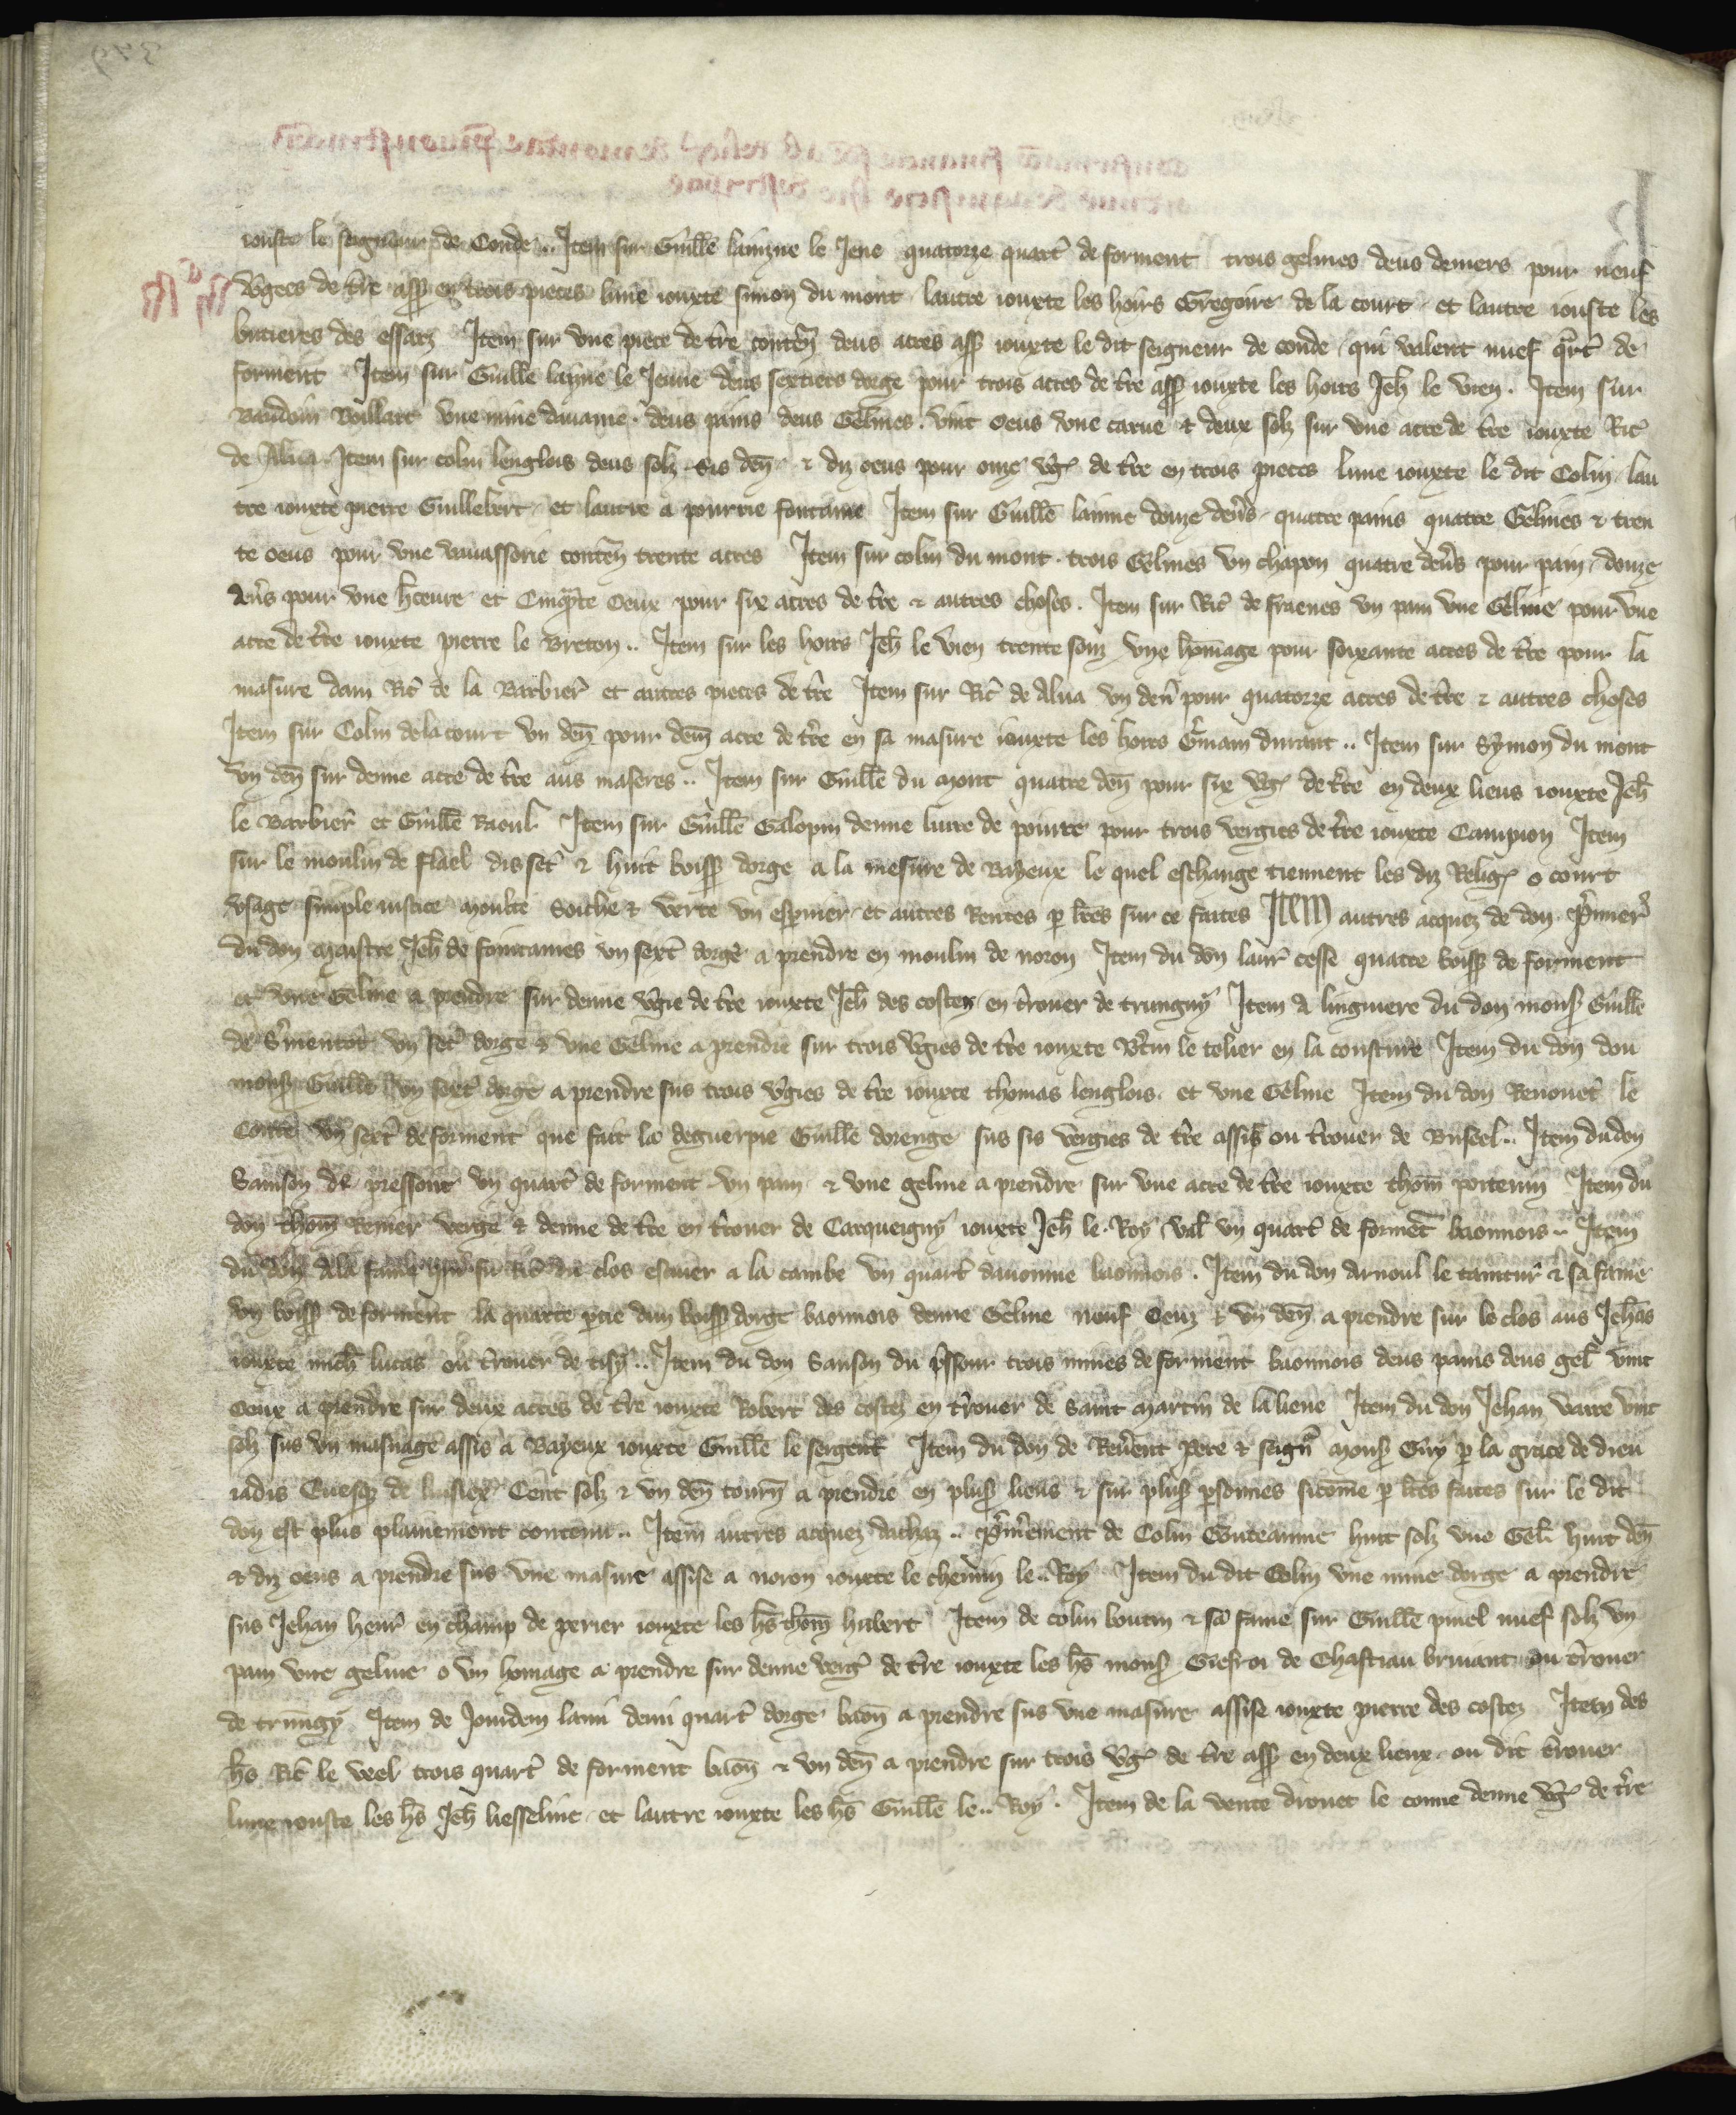 iouste le seigneur de Conde .. Item sur Guille lainzne le Jene quatorze quart de forment trois gelines deus deniers pour neuf
vgees de tre assis en trois pieces lune iouxte simon du mont lautre iouxte les hoirs Gregoire de la court et lautre iouste les
bruieres des essarz Item sur vne piece de tre conten deus acres ass iouxte le dit seigneur de conde qui valent nuef qrt de
forment Item sur Guille layne le Jenne deus sextiers dorge pour trois acres de tre ass iouxte les hoirs Jeh le vien . Item sur
Baudoin Boillart vne mine dauaine . deus pains deus Gelines . vint oeus vne carue & deux solz sur vne acre de tre iouxte Ric
de Alua Item sur colin lenglois deus solz sis den & diz oeus pour onze vg de tre en trois pieces lune iouxte le dit Colin lau
tre iouxte pierre Guillebert et lautre a pourrie fontaine Item sur Guille lainne douze deus quatre pains quatre Gelines & tren
te oeus pour vne vauassorie conten trente acres Item sur colin du mont . trois Gelines vn chapon quatre dens pour pain douze
dens pour vne hceure et Cinqte Oeux pour six acres de tre & autres choses . Item sur Ric de fraenes vn pain vne Geline pour vne
acre de tre iouxte pierre le Breton .. Item sur les hoirs Jeh le vien trente souz vng homage pour soixante acres de tre pour la
masure dam Ric de la Barbier et autres pieces de tre Item sur Ric de Alua vn den pour quatorze acres de tre & autres choses
Item sur Colin delacourt vn den pour dem acre de tre en sa masure iouxte les hoirs Gmain durant .. Item sur Symon du mont
vn den sur demie acre de tre aus maseres .. Item sur Guille du mont quatre den pour six vg de tre en deux lieus iouxte Jeh
le Barbier et Guille Raoul Item sur Guille Galopin demie liure de poiure pour trois vergies de tre iouxte Campion Item
sur le moulin de flael dis set & huit boiss dorge a la mesure de Bayeux le quel eschange tiennent les diz Relig o court
vsage simple iustice moulte Soiche & verte vn esprinier et autres Rentes p lres sur ce faites ITEM autres acquez de don Primier
du don maistre Jeh de fontaines vn sext dorge a prendre en moulin de noron Item du don laur cesse quatre boiss de forment
et vne Geline a prendre sur demie vgie de tre iouxte Jeh des costes en trouer de trungny Item a linguiere du don mons Guille
de Smentot vn set dorge & vne Geline a prendre sur trois vgies de tre iouxte Btin le telier en la cousture Item du don dou
mons Guille vn sext dorge a prendre sus trois vgies de tre iouxte thomas lenglois et vne Geline Item du don Renouet le
Conte vn sext de forment que fait la deguerpie Guille dorenge sus sis vergies de tre assis ou trouer de Buscel .. Item du don
Sanson de pressour vn quart de forment vn pain & vne geline a prendre sur vne acre de tre iouxte thom portenin Item du
don thom Renier verge & demie de tre en trouer de Carqueigny iouxte Jeh le Roy val vn quart de forment baonnois .. Item
du don de la fame du clos escuier a la cambe vn quart dauoinne baonnois . Item du don Arnoul le taintur & sa fame
vn boiss de forment la quarte ptie dun boiss dorge baonnois demie Geline nouf Oeuz & vn den a prendre sur le clos aus Jehas
iouxte mich lucas ou trouer de tisy .. Item du don Sanson du pssour trois mines de forment baonnois deus pains deus gel vint
Oeux a prendre sur deux acres de tre iouxte Robert des costez en trouer de Saint martin de la lieue Item du don Jehan varre vint
solz sus vn masnage assis a Bayeux iouxte Guille le sergent Item du don de Reuent pere & seign mons Guy p la grace de dieu
iadis Euesq de lisiex Cent solz & vn den tourn a prendre en plus lieus & sur plus psonnes sicome p lres faites sur le dit
don est plus plainement contenu .. Item autres acquez dachaz .. Pmierement de Colin Couteanne huit solz vne Gel huit den
& diz oeus a prendre sus vne masure assise a noron iouxte le chemin le .. Roy Item du dit Colin vne mine dorge a prendre
sus Jehan henr en champ de perier iouxte les hs thom hubert Item de colin boutin & sa fame sur Guille pinel nuef solz vn
pain vne geline o vn homage a prendre sur demie verg de tre iouxte les hs mons Giefroi de Chastiau briuant ou trouer
de trungy Item de Jouidem lami demi quart dorge baon a prendre sus vne masure assise iouxte pierre des costez Item des
hs Ric le veel trois quart de forment baon & vn den a prendre sur trois vg de tre ass en deux lieux ou dit trouer
lune iouste les hs Jeh liesseline et lautre iouxte les hs Guille le .. Roy . Item de la vente drouet le conne demie vg de tre